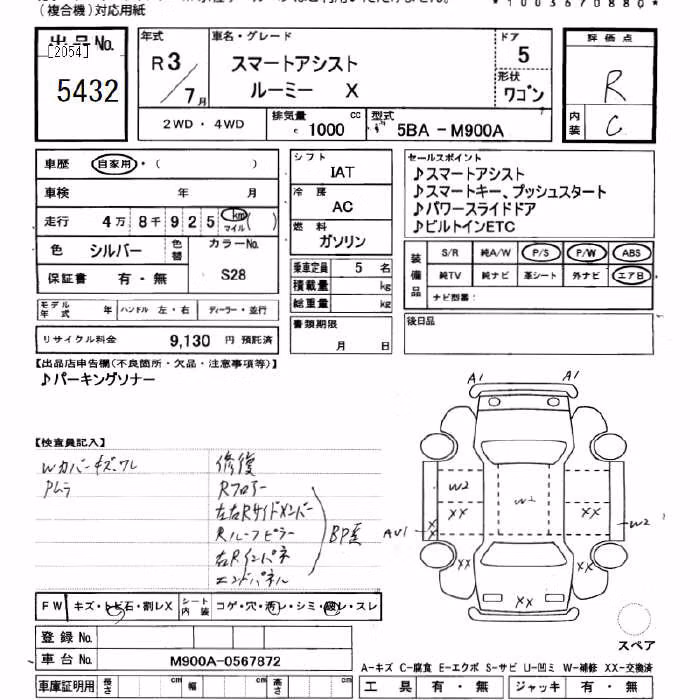 (複合機)対応用紙
*1003670880*
出品No.
[2054]
5432
年式
R3
7月
車名・グレード
スマートアシスト
ルーミー X
ドア
5
形状
ワゴン
2WD・4WD
排気量
1000 cc
型式
5BA-M900A
評価点
R
内装
C
車歴 自家用・( )
車検 年 月
走行 4万 8千 9 2 5 km マイル ( )
色 シルバー 色替
カラーNo.
S28
保証書 有・無
モデル年式 年 ハンドル 左・右 ディーラー・並行
リサイクル料金 9,130 円 預託済
シフト
IAT
冷房
AC
燃料
ガソリン
乗車定員 5 名
積載量 kg
総重量 kg
書類期限
月 日
セールスポイント
♪スマートアシスト
♪スマートキー、プッシュスタート
♪パワースライドドア
♪ビルトインETC
装備品
S/R 純A/W P/S P/W ABS
純TV 純ナビ 革シート 外ナビ エアB
ナビ型番:
後日品
【出品店申告欄(不良箇所・欠品・注意事項等)】
♪パーキングソナー
【検査員記入】
Wカバーキズ、ワレ
Pムラ
修復
Rフロアー
左右Rサイドメンバー
Rルーフピラー
右Rインパネ
エンドパネル
A1 A1
W2 W2
XX XX
AU1 W2
XX XX
XX
スペア
FW キズ・トビ石・割レX シート内装 コゲ・穴・汚レ・シミ・破レ・スレ
登録No.
車台No. M900A-0567872
車庫証明用 長さ cm 幅 cm 高さ cm
A-キズ C-腐食 E-エクボ S-サビ U-凹ミ W-補修 XX-交換済
工具 有・無 ジャッキ 有・無